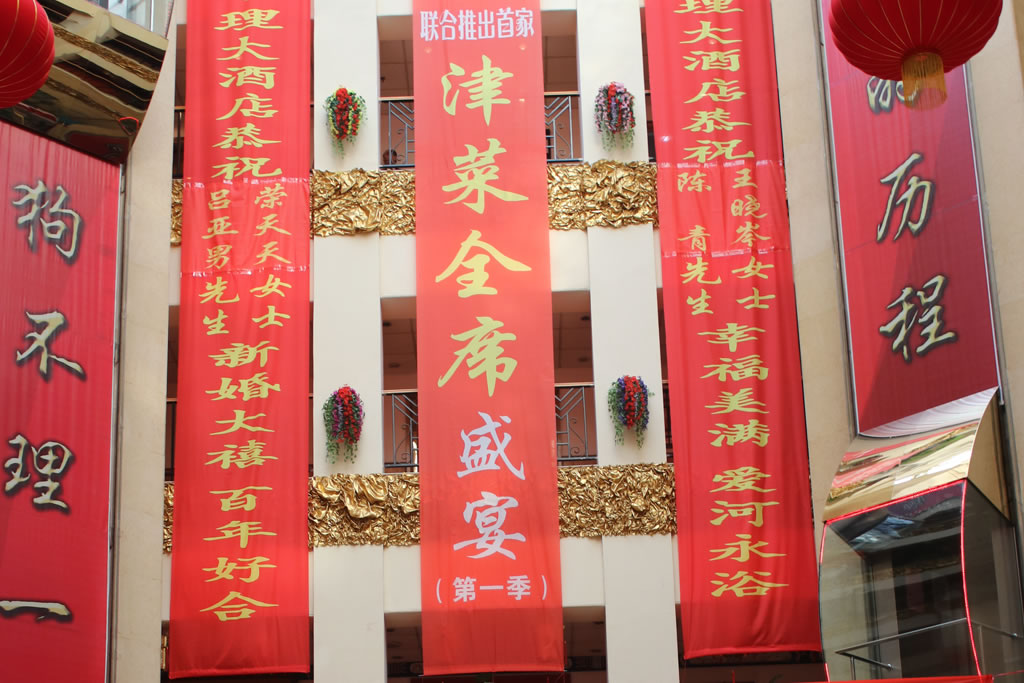 狗不理一
理大酒店恭祝
吕亚男先生
荣天天女士
新婚大禧
百年好合
联合推出首家
津菜全席
盛宴
(第一季)
理大酒店恭祝
陈青先生
王晓岑女士
幸福美满
爱河永浴
的历程